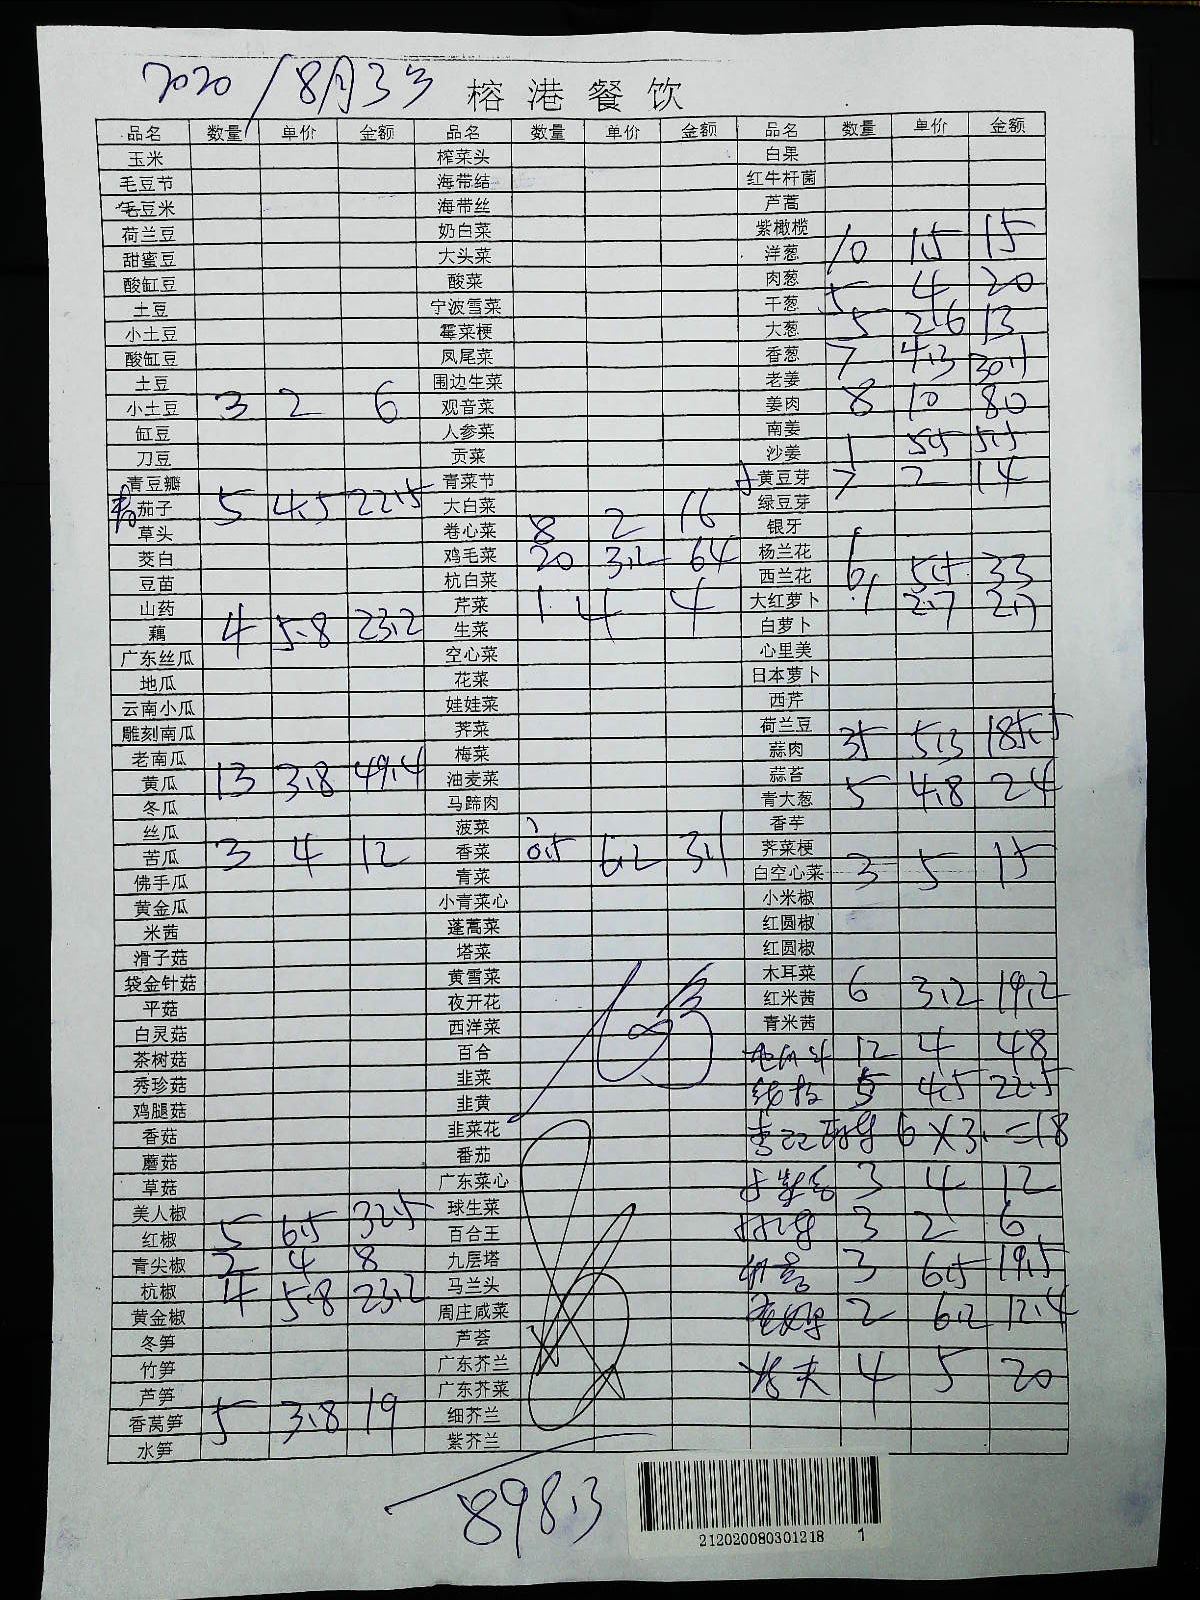 2020/8月3号
榕港餐饮
品名 数量 单价 金额 品名 数量 单价 金额 品名 数量 单价 金额
玉米 榨菜头 白果
毛豆节 海带结 红牛杆菌
毛豆米 海带丝 芦蒿
荷兰豆 奶白菜 紫橄榄
甜蜜豆 大头菜 洋葱 10 1.5 15
酸缸豆 酸菜 肉葱
土豆 宁波雪菜 干葱 5 4 20
小土豆 霉菜梗 大葱 5 2.6 13
酸缸豆 凤尾菜 香葱 7 4.3 30.1
土豆 围边生菜 老姜
小土豆 3 2 6 观音菜 姜肉 8 10 80
缸豆 人参菜 南姜
刀豆 贡菜 沙姜 1 5.5 5.5
青豆瓣 青菜节 黄豆芽 7 2 14
茄子 5 4.5 22.5 大白菜 绿豆芽
草头 卷心菜 8 2 16 银牙
茭白 鸡毛菜 20 3.2 64 杨兰花
豆苗 杭白菜 西兰花 6 5.5 33
山药 芹菜 1 4 4 大红萝卜 1 2.7 2.7
藕 4 5.8 23.2 生菜 白萝卜
广东丝瓜 空心菜 心里美
地瓜 花菜 日本萝卜
云南小瓜 娃娃菜 西芹
雕刻南瓜 荠菜 荷兰豆
老南瓜 梅菜 蒜肉 35 5.3 185.5
黄瓜 13 3.8 49.4 油麦菜 蒜苔
冬瓜 马蹄肉 青大葱 5 4.8 24
丝瓜 菠菜 香芋
苦瓜 3 4 12 香菜 0.5 6.2 3.1 荠菜梗
佛手瓜 青菜 白空心菜 3 5 15
黄金瓜 小青菜心 小米椒
米茜 蓬蒿菜 红圆椒
滑子菇 塔菜 红圆椒
袋金针菇 黄雪菜 木耳菜
平菇 夜开花 红米茜 6 3.2 19.2
白灵菇 西洋菜 青米茜
茶树菇 百合 12 4 48
秀珍菇 韭菜 5 4.5 22.5
鸡腿菇 韭黄
香菇 韭菜花 6×3.=18
蘑菇 番茄
草菇 广东菜心 3 4 12
美人椒 球生菜
红椒 5 6.5 32.5 百合王 3 2 6
青尖椒 2 4 8 九层塔
杭椒 4 5.8 23.2 马兰头 3 6.5 19.5
黄金椒 周庄咸菜 2 6.2 12.4
冬笋 芦荟
竹笋 广东芥兰
芦笋 广东芥菜 4 5 20
香莴笋 5 3.8 19 细芥兰
水笋 紫芥兰
898.3
212020080301218 1